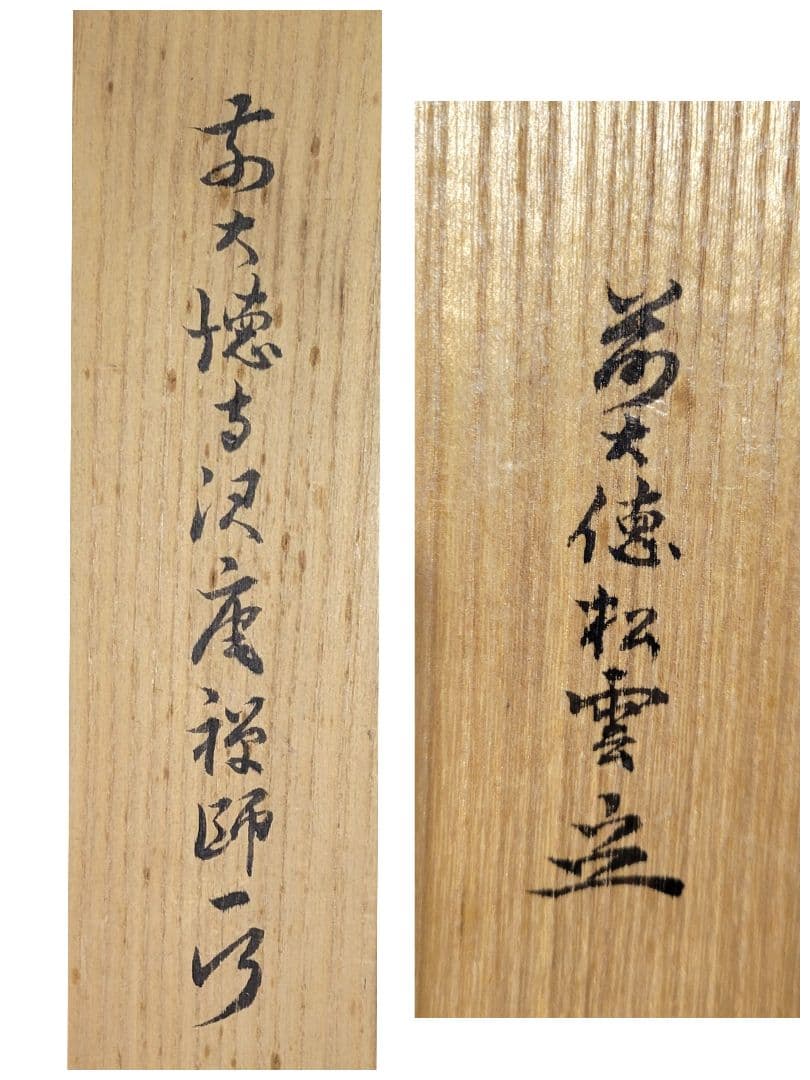 前大徳寺沢庵禅師一行
前大徳松雲立